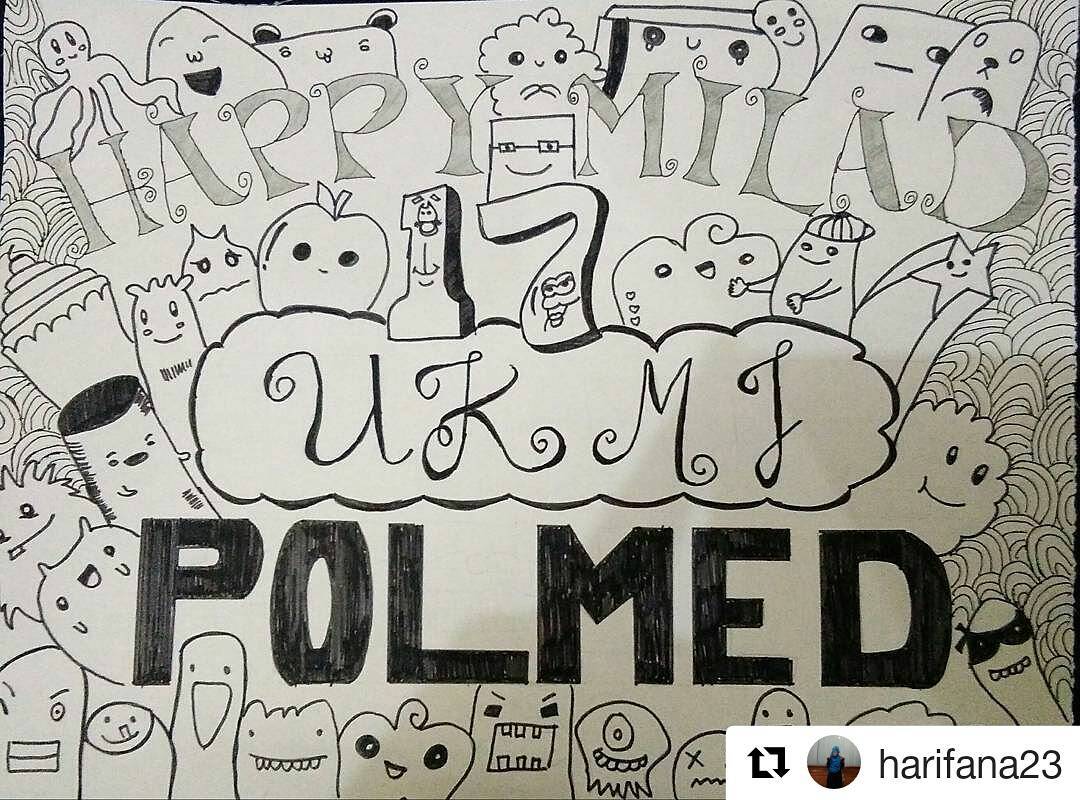 HAPPY MILAD
17
UKMJ
POLMED
harifana23